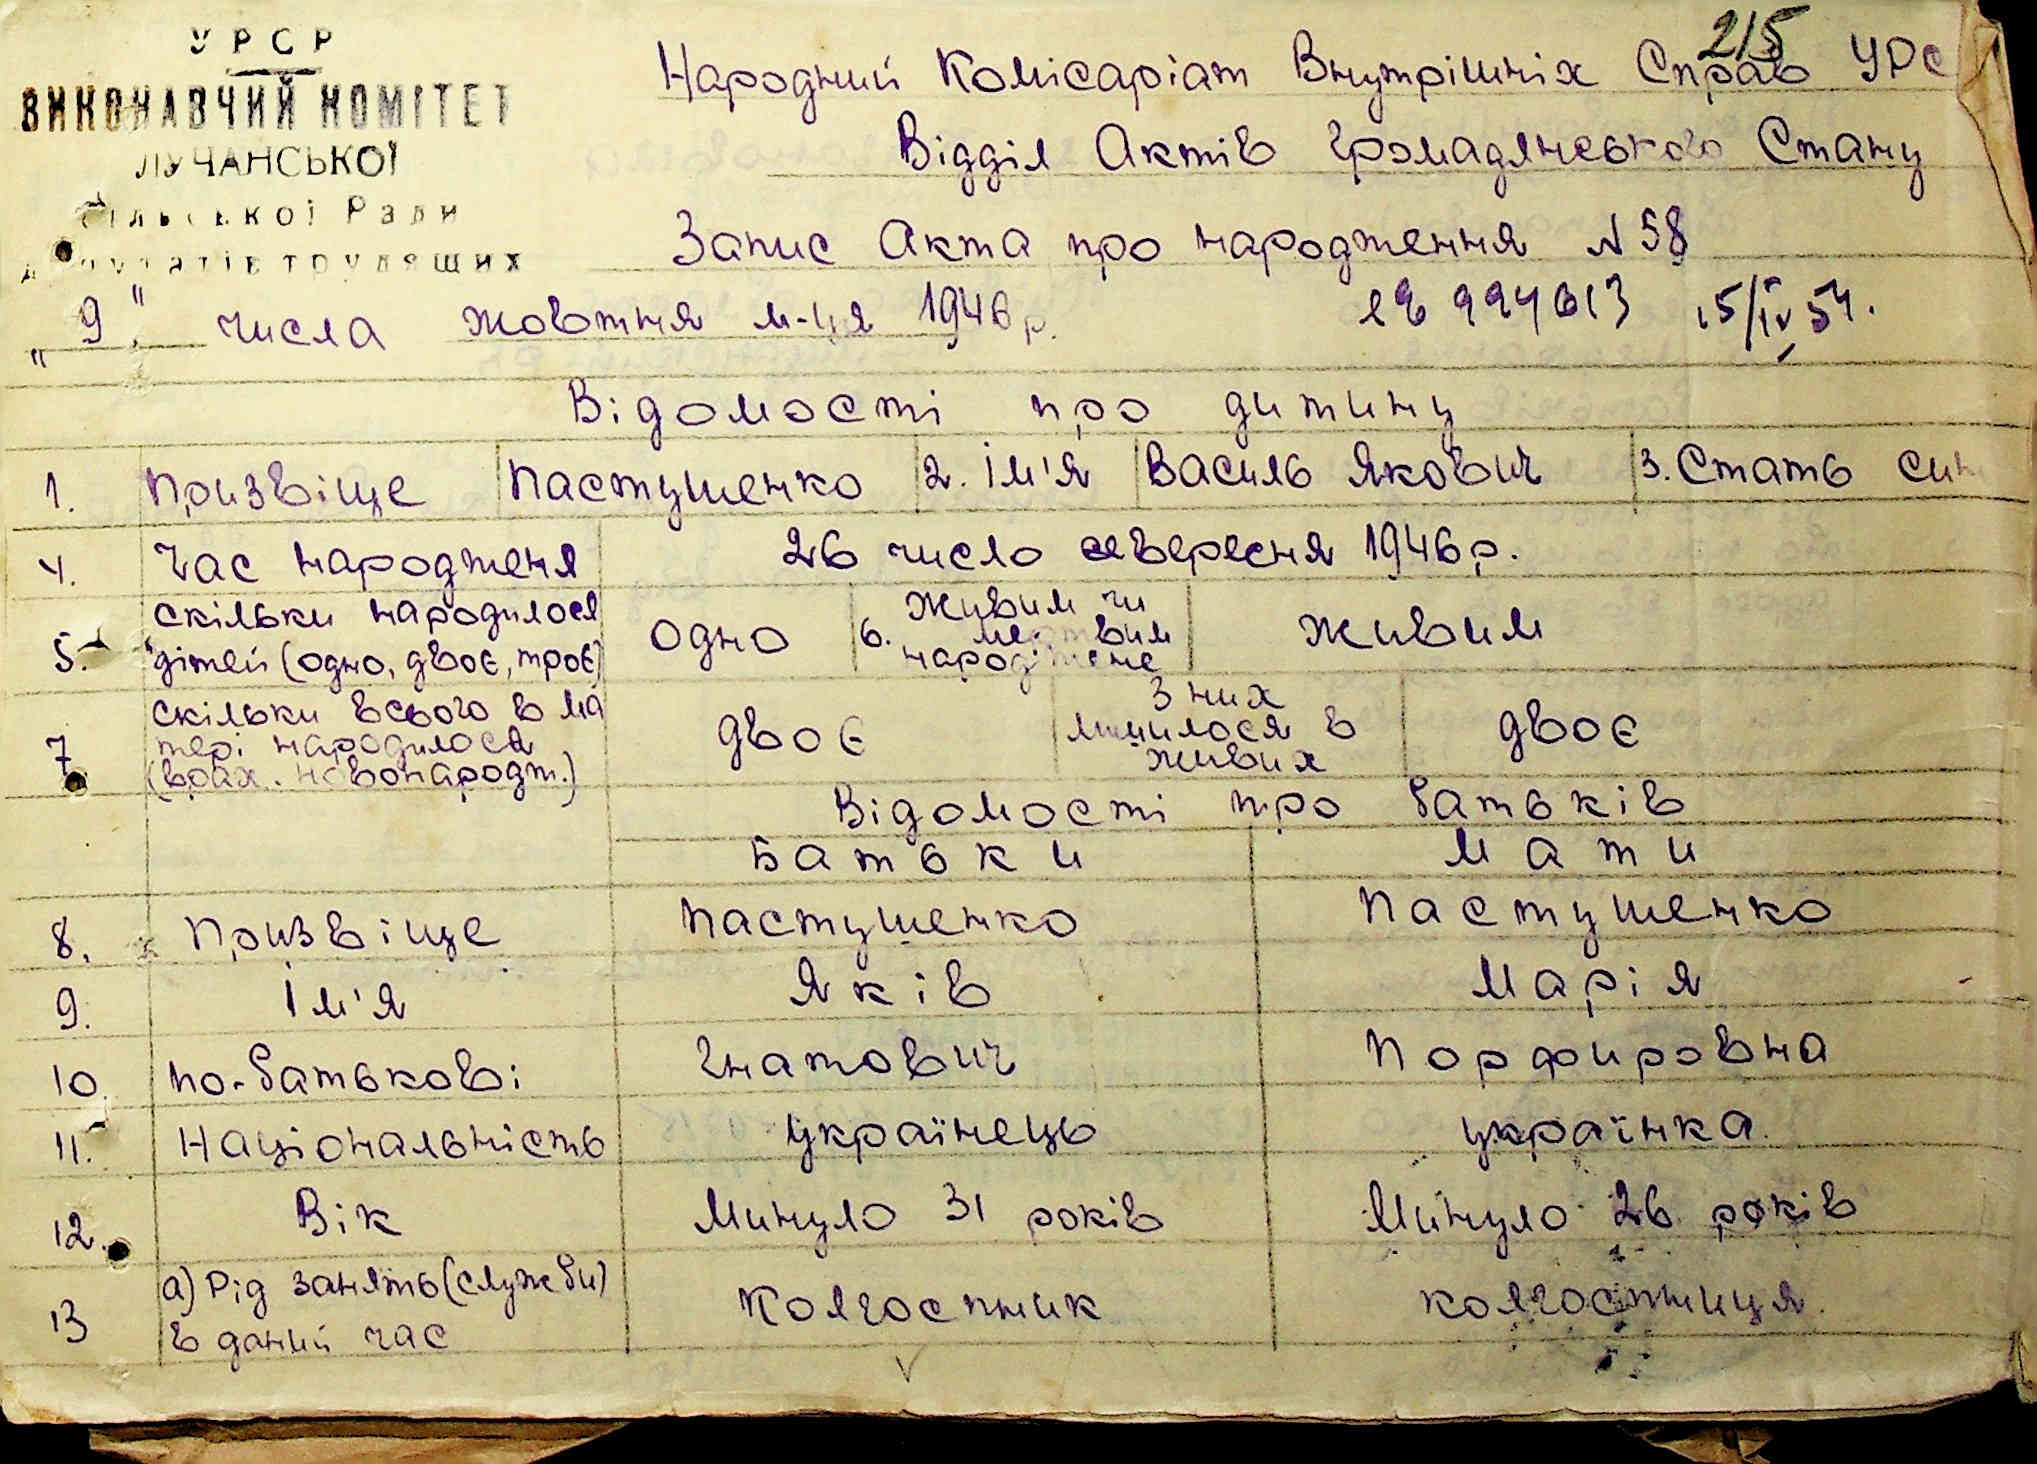 215
УРСР
ВИКОНАВЧИЙ КОМІТЕТ
ЛУЧАНСЬКОЇ
Сільської Ради
депутатів трудящих
Народний Комісаріат Внутрішніх Справ УРС
Відділ Актів Громадянського Стану
Запис Акта про народження N 58
"9" числа жовтня м-ця 1946 р.
15/IV 54.
Відомості про дитину
1. Призвіще Пастушенко 2. Ім'я Василь Якович 3. Стать син
4. Час народженя 26 число севересня 1946 р.
5. скільки народилося дітей (одно, двоє, троє) одно 6. Живим чи мертвим народжене живим
7 скільки всього в матері народилося (врах. новонародж.) двоє З них лишилося в живих двоє
Відомості про батьків
Батьки Мати
8. Призвіще Пастушенко Пастушенко
9. Ім'я Яків Марія
10. по-батькові Гнатович Порфировна
11. Національність Українець українка
12. Вік Минуло 31 років Минуло 26 років
13 а) Рід занять (служби) в даний час Колгоспник колгоспниця